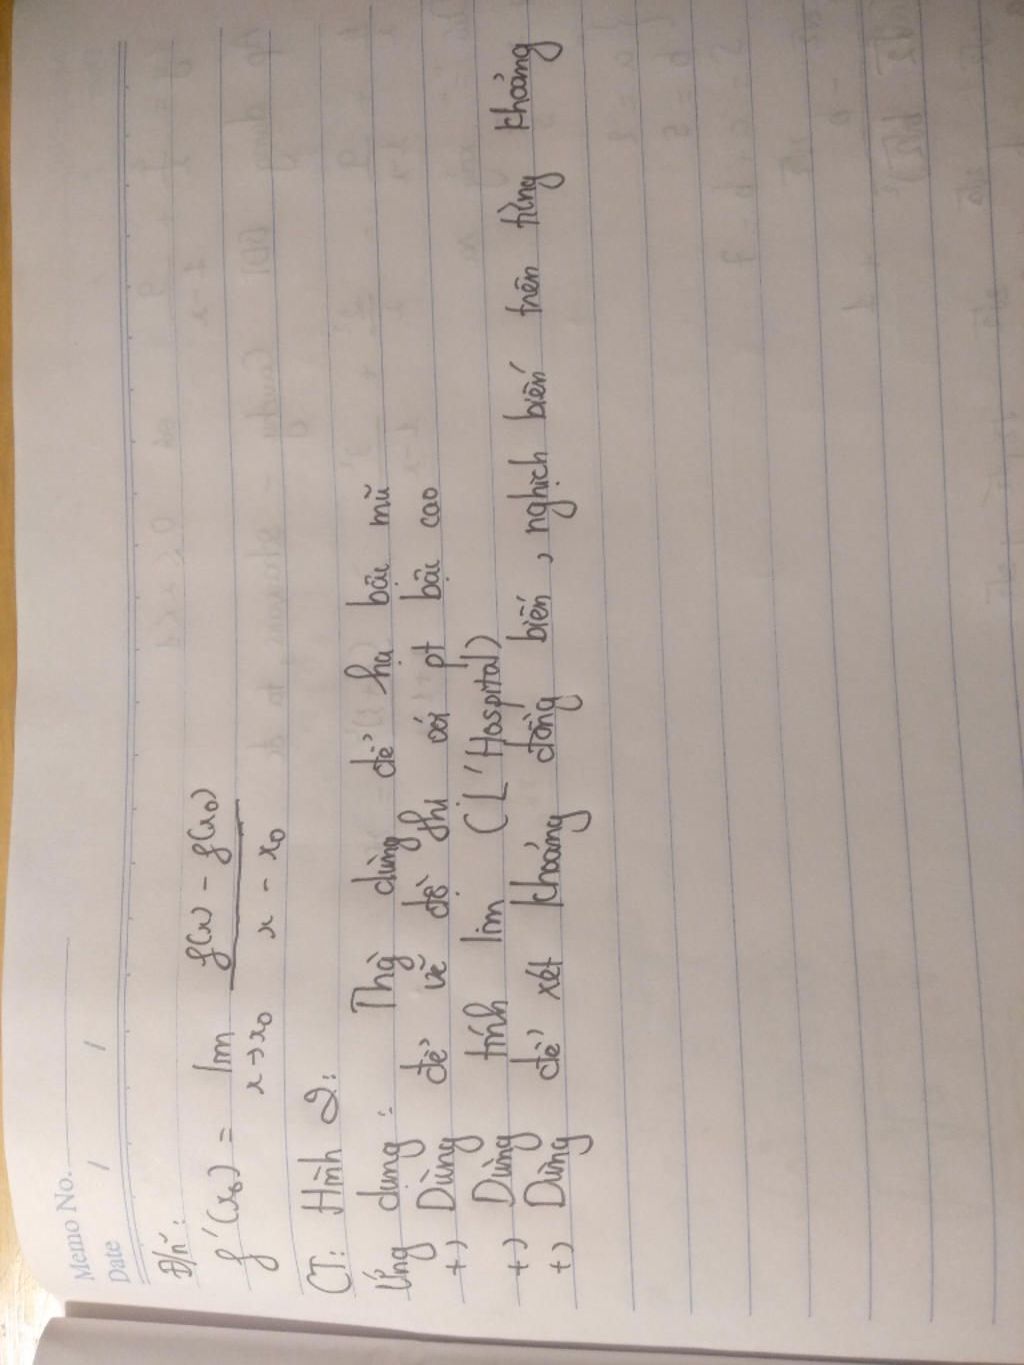 Memo No.
Date / /
Đ/n:
f'(x₀) = lim f(x) - f(x₀)
x→x₀ x - x₀
CT: Hình 2:
Ứng dụng: Thg dùng để hạ bậc mũ
+) Dùng để vẽ đồ thị với pt bậc cao
+) Dùng tính lim (L'Hospital)
+) Dùng để xét khoảng đồng biến, nghịch biến trên từng khoảng